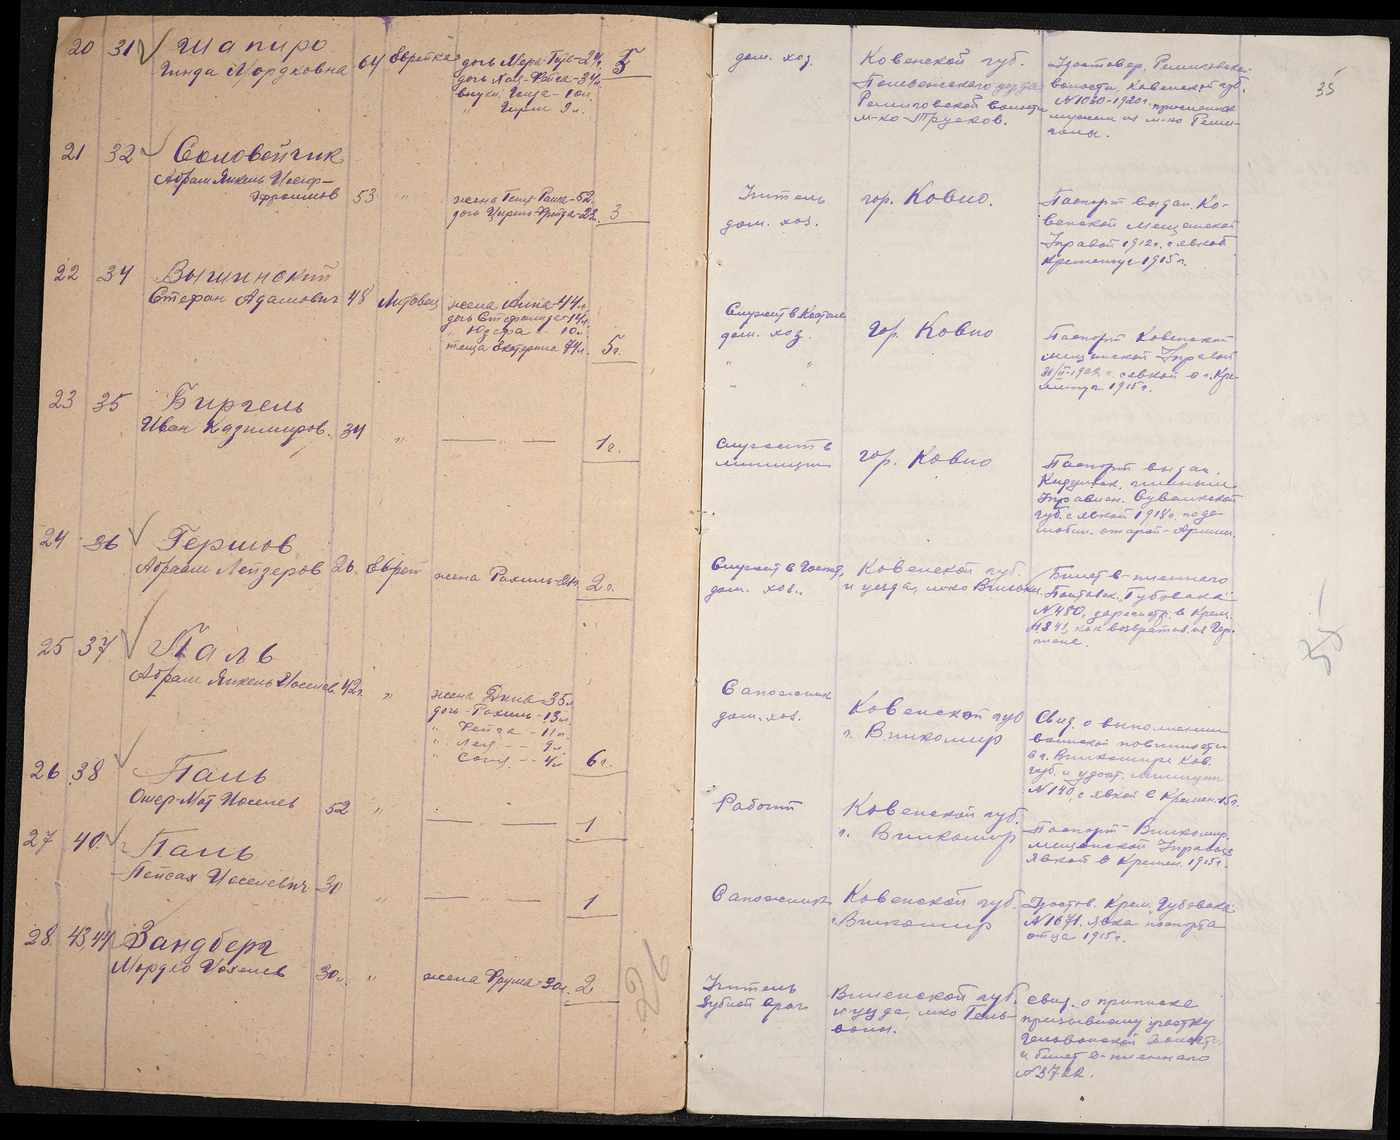 20 31 Шапиро
Гинда Мордховна 64 Еврейка
дочь Мера-Гита-24л. 5
дочь Хая-Фейга-34л.
внуки Геща-10л.
Гирш 9л.
21 32 Соловейчик
Абрам Янкель Иосиф-
Эфроимов 53 "
жена Геня-Раша-52.
дочь Цирль-Фрейда-22л. 3
22 34 Вышинский
Стефан Адамович 48 Литовец жена Анна-44л.
дочь Стефанида-14л.
" Юзефа - 10л.
теща Екатерина 74л. 5ч.
23 35 Биргель
Иван Казимиров. 34 " — " — 1ч.
24 36 Гершов
Абрам Лейзеров 26. Еврей жена Рахиль 2ч.
25 37 Паль
Абрам Янкель Иоселев. 42г. "
жена Дина-35л.
дочь-Рахиль-13л.
" Фейга - 11л.
" Лея - - 9л.
" Соня - - 4л. 6ч.
26 38 Паль
Ошер-Мот Иоселев 52 " — 1
27 40. Паль
Пейсах Иоселевич 30 " — " — 1
28 43 44 Зандберг
Мордхо Иоселев 30л. " жена Фрума-30л. 2
26
дом. хоз.
Ковенской губ.
Поневежского уезда
Ремиговской волости
м-ко Трусков.
Удостовер. Ремиговской
волости, Ковенской губ.
№1060-1920г. прописанное
мужем из м-ко Реми-
голы.
35
Учитель
дом. хоз.
гор. Ковно.
Паспорт выдан. Ко-
венской Мещанской
Управой 1912г. с явкой
Кременчуг 1915г.
Служит в
дом. хоз.
" "
" "
гор. Ковно
Паспорт Ковенской
мещанской Управой
с явкой в г. Кре-
менчуг 1915г.
Служит в
милиции
гор. Ковно
Паспорт выдан.
гминным
Управлен. Сувалкской
губ. с явкой 1918г.
старой-Армии.
Служит в
дом. хоз.
Ковенской губ.
и уезда, м-ко Вильки.
Билет в-пленного
Полтавск. Губвоенк.
№480, зарегистр. в Крем.
как возвратив. из Гер-
мании.
Сапожник
дом. хоз.
Ковенской губ
г. Вилкомир
Свид. о выполнении
воинской повинности
в г. Вилкомире Ков.
губ. и удост. милиции
№140, с явкой в Кремен. 15г.
35
Работ
Ковенской губ.
г. Вилкомир
Паспорт Вилкомир.
мещанской Управы с
явкой в Кремен. 1915г.
Сапожник
Ковенской губ.
Вилкомир
Удостов. Крем. Губвоенк.
№1671. явка паспорта
отца 1915г.
Учитель
Зубной врач
Виленской губ.
и уезда, м-ко Гель-
воны.
Свид. о приписке
призывному участку
Гельвонской волости
и билет в-пленного
№3722.